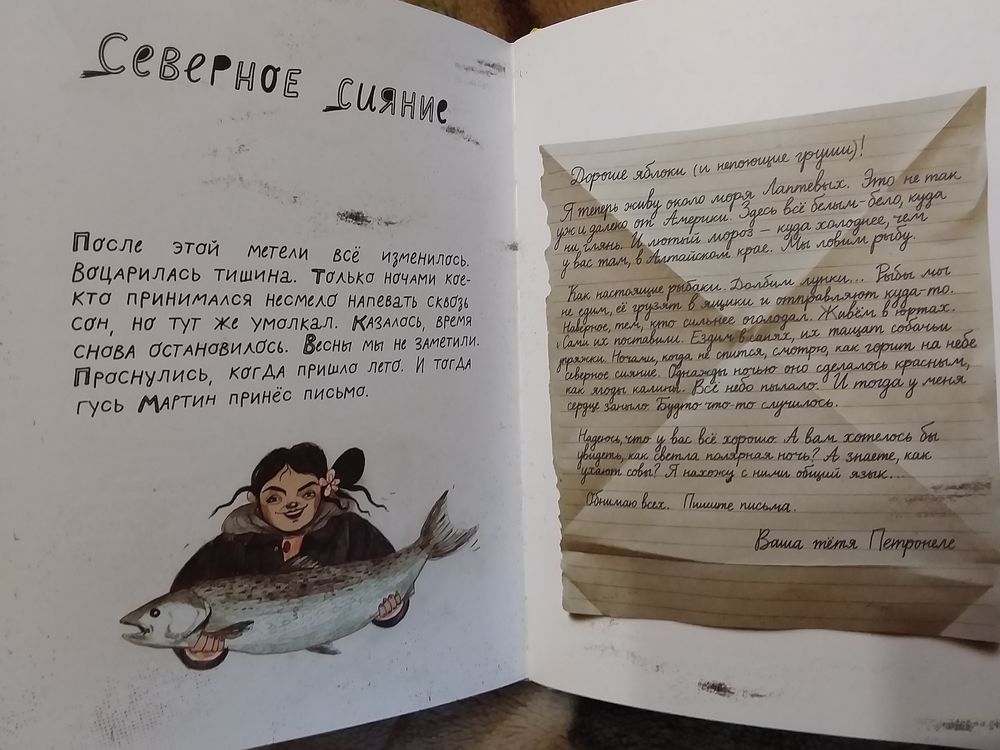 Северное сияние
После этой метели всё изменилось.
Воцарилась тишина. Только ночами кое-
кто принимался несмело напевать сквозь
сон, но тут же умолкал. Казалось, время
снова остановилось. Весны мы не заметили.
Проснулись, когда пришло лето. И тогда
гусь Мартин принёс письмо.
Дорогие яблоки (и непоющие груши)!
Я теперь живу около моря Лаптевых. Это не так
уж и далеко от Америки. Здесь всё белым-бело, куда
ни глянь. И лютый мороз — куда холоднее, чем
у вас там, в Алтайском крае. Мы ловим рыбу.
Как настоящие рыбаки. Долбим лунки... Рыбы мы
не едим, её грузят в ящики и отправляют куда-то.
Наверное, тем, кто сильнее оголодал. Живём в юртах.
Сами их поставили. Ездим в санях, их тащат собачьи
упряжки. Ночами, когда не спится, смотрю, как горит на небе
северное сияние. Однажды ночью оно сделалось красным,
как ягоды калины. Всё небо пылало. И тогда у меня
сердце заныло. Будто что-то случилось.
Надеюсь, что у вас всё хорошо. А вам хотелось бы
увидеть, как светла полярная ночь? А знаете, как
ухают совы? Я нахожу с ними общий язык...
Обнимаю всех. Пишите письма.
Ваша тётя Петронеле